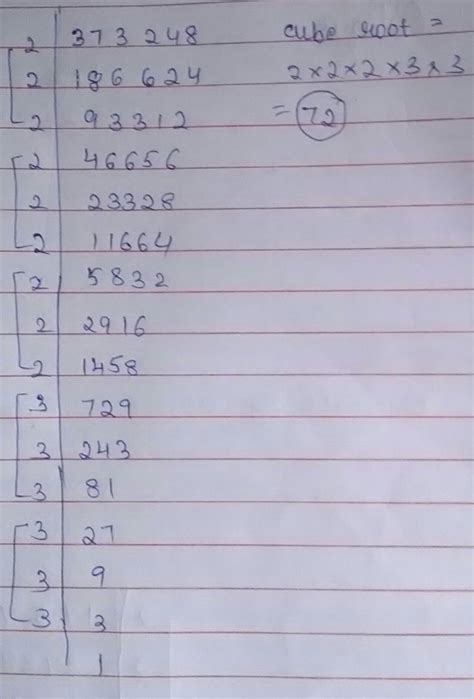 2 373 248 cube root =
2 186 624 2×2×2×3×3
2 93312 = 72
2 46656
2 23328
2 11664
2 5832
2 2916
2 1458
3 729
3 243
3 81
3 27
3 9
3 3
1